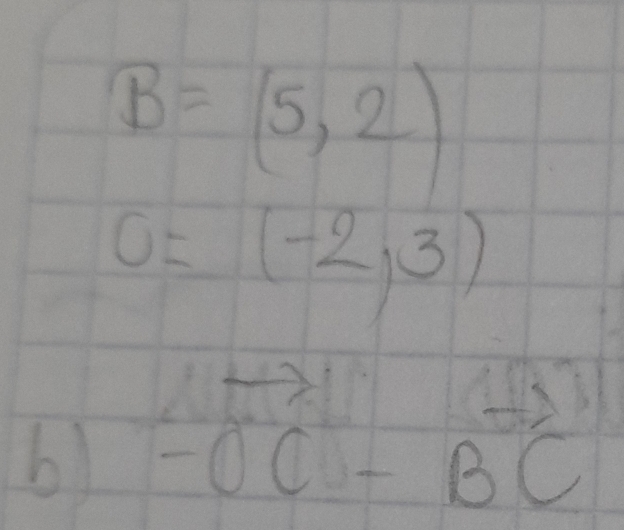 B = (5, 2)
O = (-2, 3)
b) -\overrightarrow{OC} - \overrightarrow{BC}